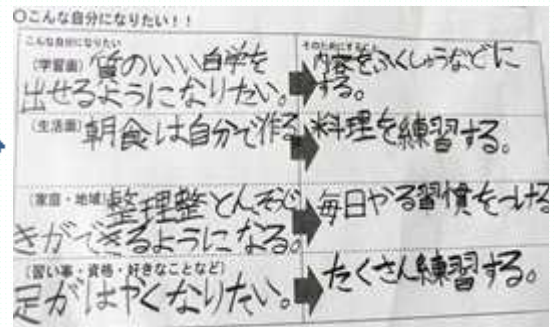 ○こんな自分になりたい!!
こんな自分になりたい
そのためにすること
(学習面) 質のいい自学を
出せるようになりたい。
内容をふくしゅうなどに
する。
(生活面) 朝食は自分で作る
料理を練習する。
(家庭・地域) 整理整とん、そうじ
きができるようになる。
毎日やる習慣をつける
(習い事・資格・好きなことなど)
足がはやくなりたい。
たくさん練習する。